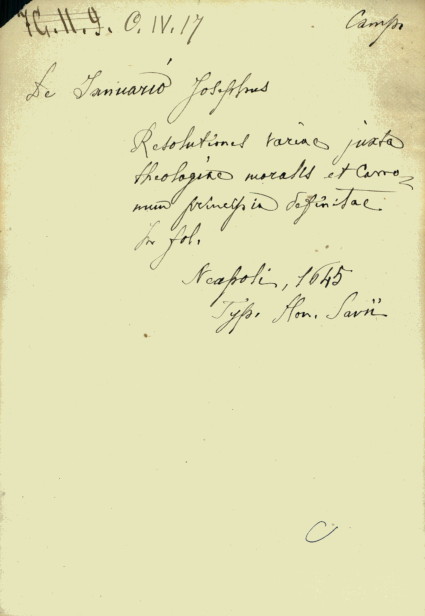 7G.II.9. O.IV.17 Camp.
De Januariò Josephus
Resolutiones variae juxta
theologiae moralis et Cano-
num principia definitae.
In fol.
Neapoli, 1645
Typ. Hon. Savii
C